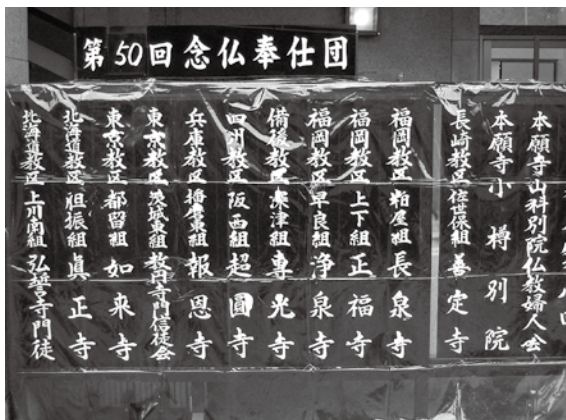 第50回念仏奉仕団
本願寺山科別院仏教婦人会
本願寺小樽別院
長崎教区佐世保組善定寺
福岡教区粕屋組長泉寺
福岡教区上下組正福寺
福岡教区早良組浄泉寺
備後教区深津組専光寺
四州教区阪西組超圓寺
兵庫教区播磨東組報恩寺
東京教区茨城東組教円寺門信徒会
東京教区都留組如来寺
北海道教区胆振組眞正寺
北海道教区上川南組弘誓寺門徒